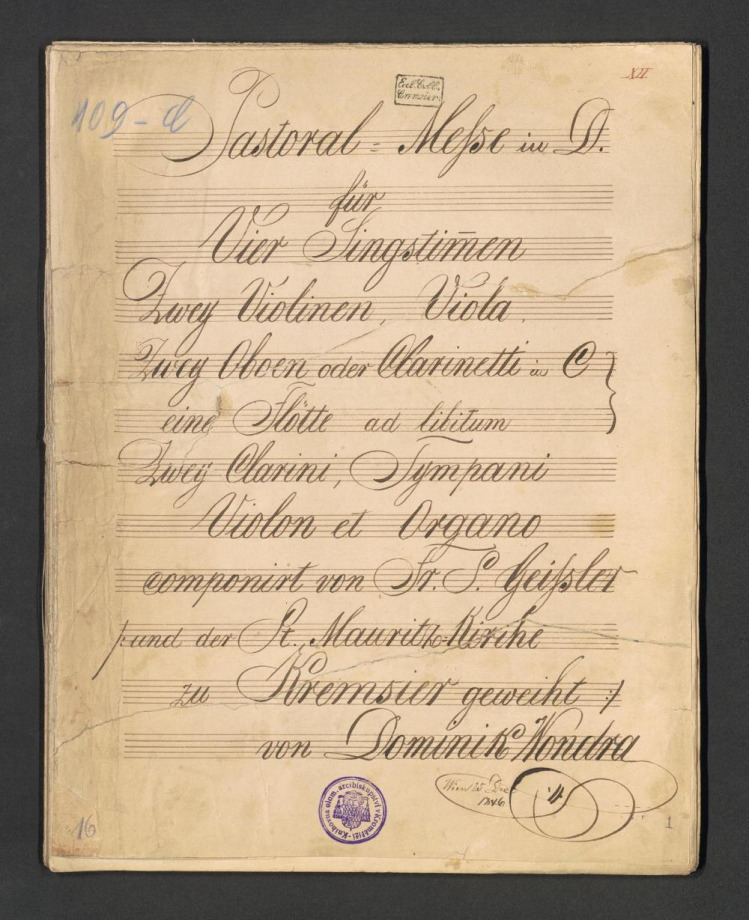 XII
Eccl. Coll.
Cremsier.
109-d
Pastoral = Messe in D.
für
Vier Singstim̅en
Zwey Violinen, Viola.
Zwey Oboen oder Clarinetti in C
eine Flötte ad libitum
Zwey Clarini, Tympani
Violon et Organo
componirt von Fr. S. Geißler
/: und der St. Mauritz-Kirche
zu Kremsier geweiht :/
von Dominik Wondra
Wien 25 Dec
1846
Knihovna olom. arcibiskupství v Kroměříži
16
1